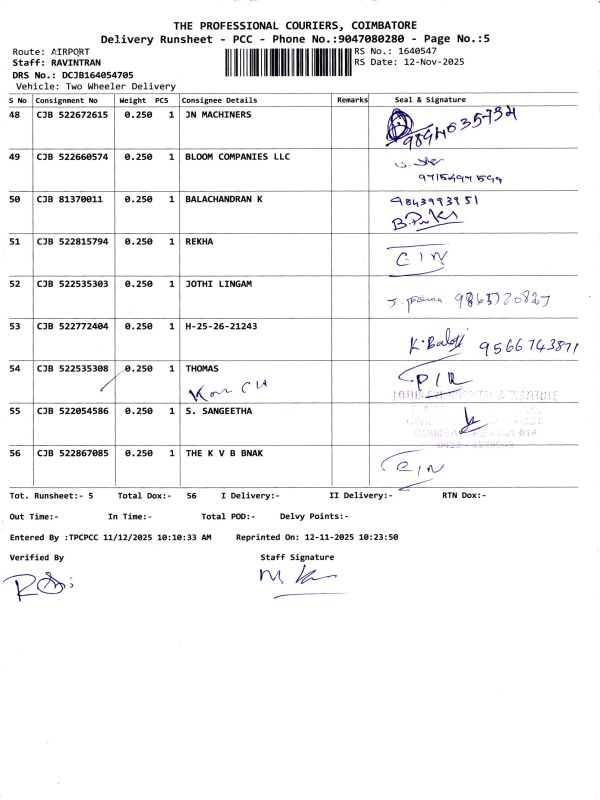 THE PROFESSIONAL COURIERS, COIMBATORE
Delivery Runsheet - PCC - Phone No.:9047080280 - Page No.:5
Route: AIRPORT RS No.: 1640547
Staff: RAVINTRAN RS Date: 12-Nov-2025
DRS No.: DCJB164054705
Vehicle: Two Wheeler Delivery
S No Consignment No Weight PCS Consignee Details Remarks Seal & Signature
48 CJB 522672615 0.250 1 JN MACHINERS
9894635734
49 CJB 522660574 0.250 1 BLOOM COMPANIES LLC
9715497599
50 CJB 81370011 0.250 1 BALACHANDRAN K 9843993951
51 CJB 522815794 0.250 1 REKHA
CIN
52 CJB 522535303 0.250 1 JOTHI LINGAM
9865720827
53 CJB 522772404 0.250 1 H-25-26-21243
K. Balaji 9566743871
54 CJB 522535308 0.250 1 THOMAS
55 CJB 522054586 0.250 1 S. SANGEETHA
56 CJB 522867085 0.250 1 THE K V B BNAK
CIN
Tot. Runsheet:- 5 Total Dox:- 56 I Delivery:- II Delivery:- RTN Dox:-
Out Time:- In Time:- Total POD:- Delvy Points:-
Entered By :TPCPCC 11/12/2025 10:10:33 AM Reprinted On: 12-11-2025 10:23:50
Verified By Staff Signature